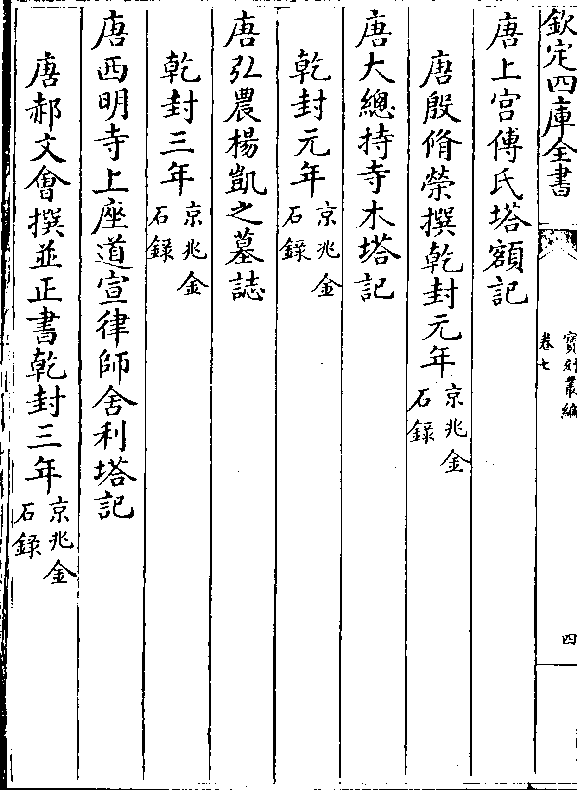 欽定四庫全書
寶刻叢編
卷七
四
唐上宫傅氏塔額記
唐殷脩榮撰乾封元年京兆金石録
唐大總持寺木塔記
乾封元年京兆金石録
唐弘農楊凱之墓誌
乾封三年京兆金石録
唐西明寺上座道宣律師舍利塔記
唐郝文會撰並正書乾封三年京兆金石録